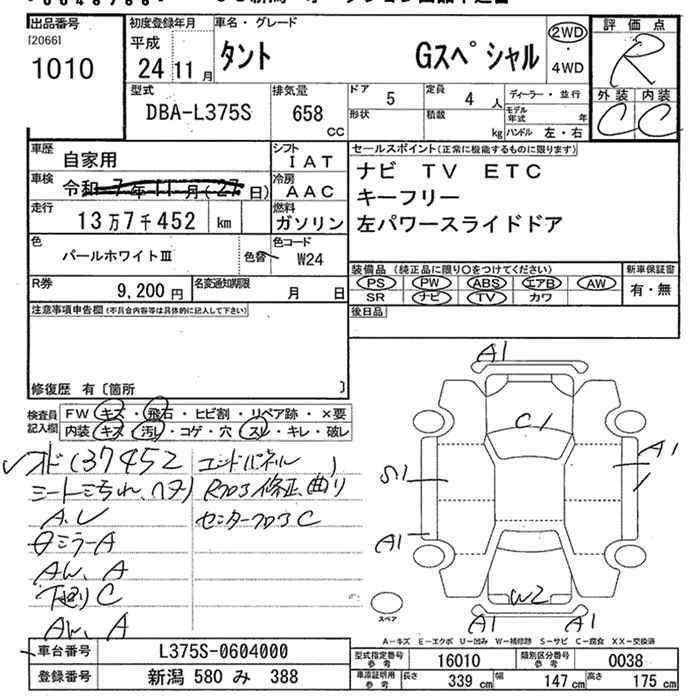 出品番号
[2066]
1010
初度登録年月
平成
24 11 月
車名・グレード
タント Gスペシャル
2WD
・
4WD
評価点
R
外装 内装
C C
型式
DBA-L375S
排気量
658
CC
ドア 5 定員 4 人
形状 積載 kg
ディーラー・並行
モデル年式 年
ハンドル 左・右
車歴 自家用
シフト
IAT
車検 令和 7 年 11 月 (27 日)
冷房
AAC
走行 13万7千452 km
燃料
ガソリン
セールスポイント(正常に機能するものに限ります)
ナビ TV ETC
キーフリー
左パワースライドドア
色
パールホワイトⅢ
色替
色コード
W24
装備品 (純正品に限り○をつけてください)
PS PW ABS エアB AW
SR ナビ TV カワ
新車保証書
有・無
R券 9,200 円
名変通知期限
月 日
注意事項申告欄(不具合内容等は具体的に記入して下さい)
後日品
修復歴 有 〔箇所 〕
検査員記入欄
FW キズ・飛石・ヒビ割・リペア跡・×要
内装 キズ 汚レ・コゲ・穴 スレ・キレ・破レ
オド137452
エンドパネル
シートヨゴれ、ヘタリ
Rフロア修正、曲り
A.U
センターフロアC
ミラーA
AW、A
下廻りC
AW、A
A1
C1
A1
S1
A1
W2
A1 A1
スペア
A-キズ E-エクボ U-凹み W-補修跡 S-サビ C-腐食 XX-交換済
車台番号 L375S-0604000
登録番号 新潟 580 み 388
型式指定番号
参考
16010
類別区分番号
参考
0038
車庫証明用
参考
長さ 339 cm 幅 147 cm 高さ 175 cm